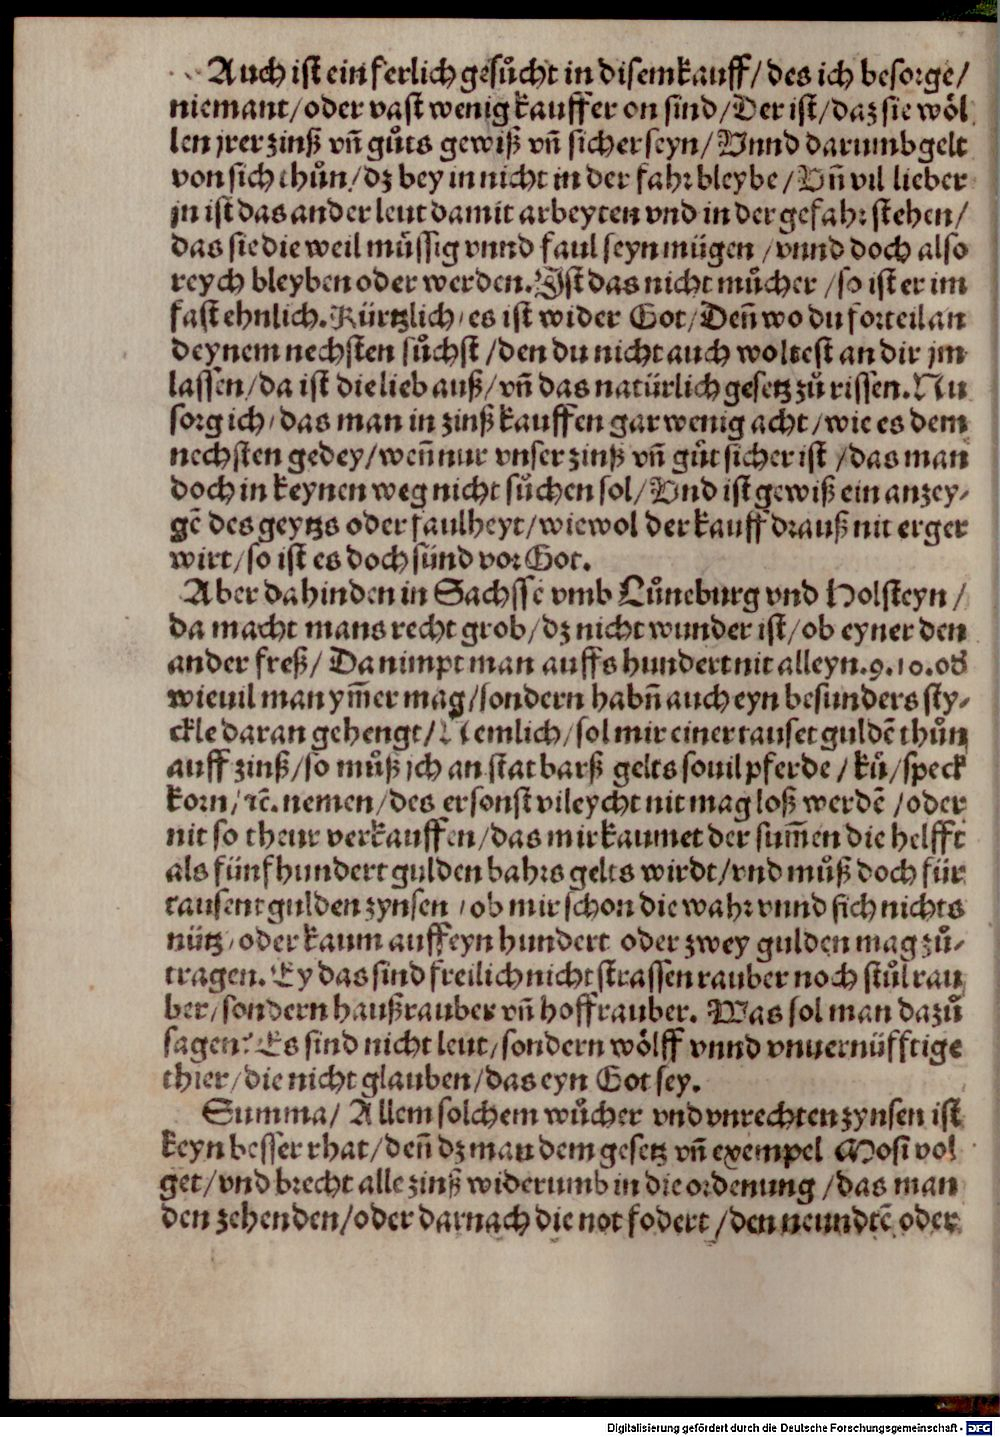 Auch ist ein ferlich gesůcht in disem kauff/ des ich besorge/
niemant/ oder vast wenig kauffer on sind/ Der ist/ daz sie wöl
len jrer zinß vñ gůts gewiß vñ sicher seyn/ Vnnd darumb gelt
von sich thůn/ dz bey in nicht in der fahr bleybe/ Vñ vil lieber
jn ist das ander leut damit arbeyten vnd in der gefahr stehen/
das sie die weil můssig vnnd faul seyn mügen/ vnnd doch also
reych bleyben oder werden. Ist das nicht wůcher/ so ist er im
fast ehnlich. Kürtzlich/ es ist wider Got/ Deñ wo du forteil an
deynem nechsten sůchst/ den du nicht auch woltest an dir jm
lassen/ da ist die lieb auß/ vñ das natürlich gesetz zů rissen. Nu
sorg ich/ das man in zinß kauffen gar wenig acht/ wie es dem
nechsten gedey/ weñ nur vnser zinß vñ gůt sicher ist/ das man
doch in keynen weg nicht sůchen sol/ Vnd ist gewiß ein anzey⸗
gẽ des geytzs oder faulheyt/ wiewol der kauff drauß nit erger
wirt/ so ist es doch sünd vor Got.
Aber da hinden in Sachssẽ vmb Lůneburg vnd Holsteyn/
da macht mans recht grob/ dz nicht wunder ist/ ob eyner den
ander freß/ Da nimpt man auffs hundert nit alleyn. 9. 10. od
wieuil man ym̃er mag/ sondern habñ auch eyn besunders sty⸗
ckle daran gehengt/ Nemlich/ sol mir einer tauset guldẽ thůn
auff zinß/ so můß jch an stat barß gelts souil pferde/ ků/ speck
korn/ ꝛc̃. nemen/ des er sonst vileycht nit mag loß werdẽ/ oder
nit so theur verkauffen/ das mir kaumet der sum̃en die helfft
als fünfhundert gulden bahrs gelts wirdt/ vnd můß doch für
tausent gulden zynsen/ ob mir schon die wahr vnnd sich nichts
nütz/ oder kaum auff eyn hundert oder zwey gulden mag zů⸗
tragen. Ey das sind freilich nicht strassen rauber noch stůl rau
ber/ sondern haußrauber vñ hoffrauber. Was sol man dazů
sagen? Es sind nicht leut/ sondern wölff vnnd vnuernüfftige
thier/ die nicht glauben/ das eyn Got sey.
Summa/ Allem solchem wůcher vnd vnrechten zynsen ist
keyn besser rhat/ deñ dz man dem gesetz vñ exempel Mosi vol
get/ vnd brecht alle zinß widerumb in die ordenung/ das man
den zehenden/ oder darnach die not fodert/ den neundtẽ oder
Digitalisierung gefördert durch die Deutsche Forschungsgemeinschaft - DFG